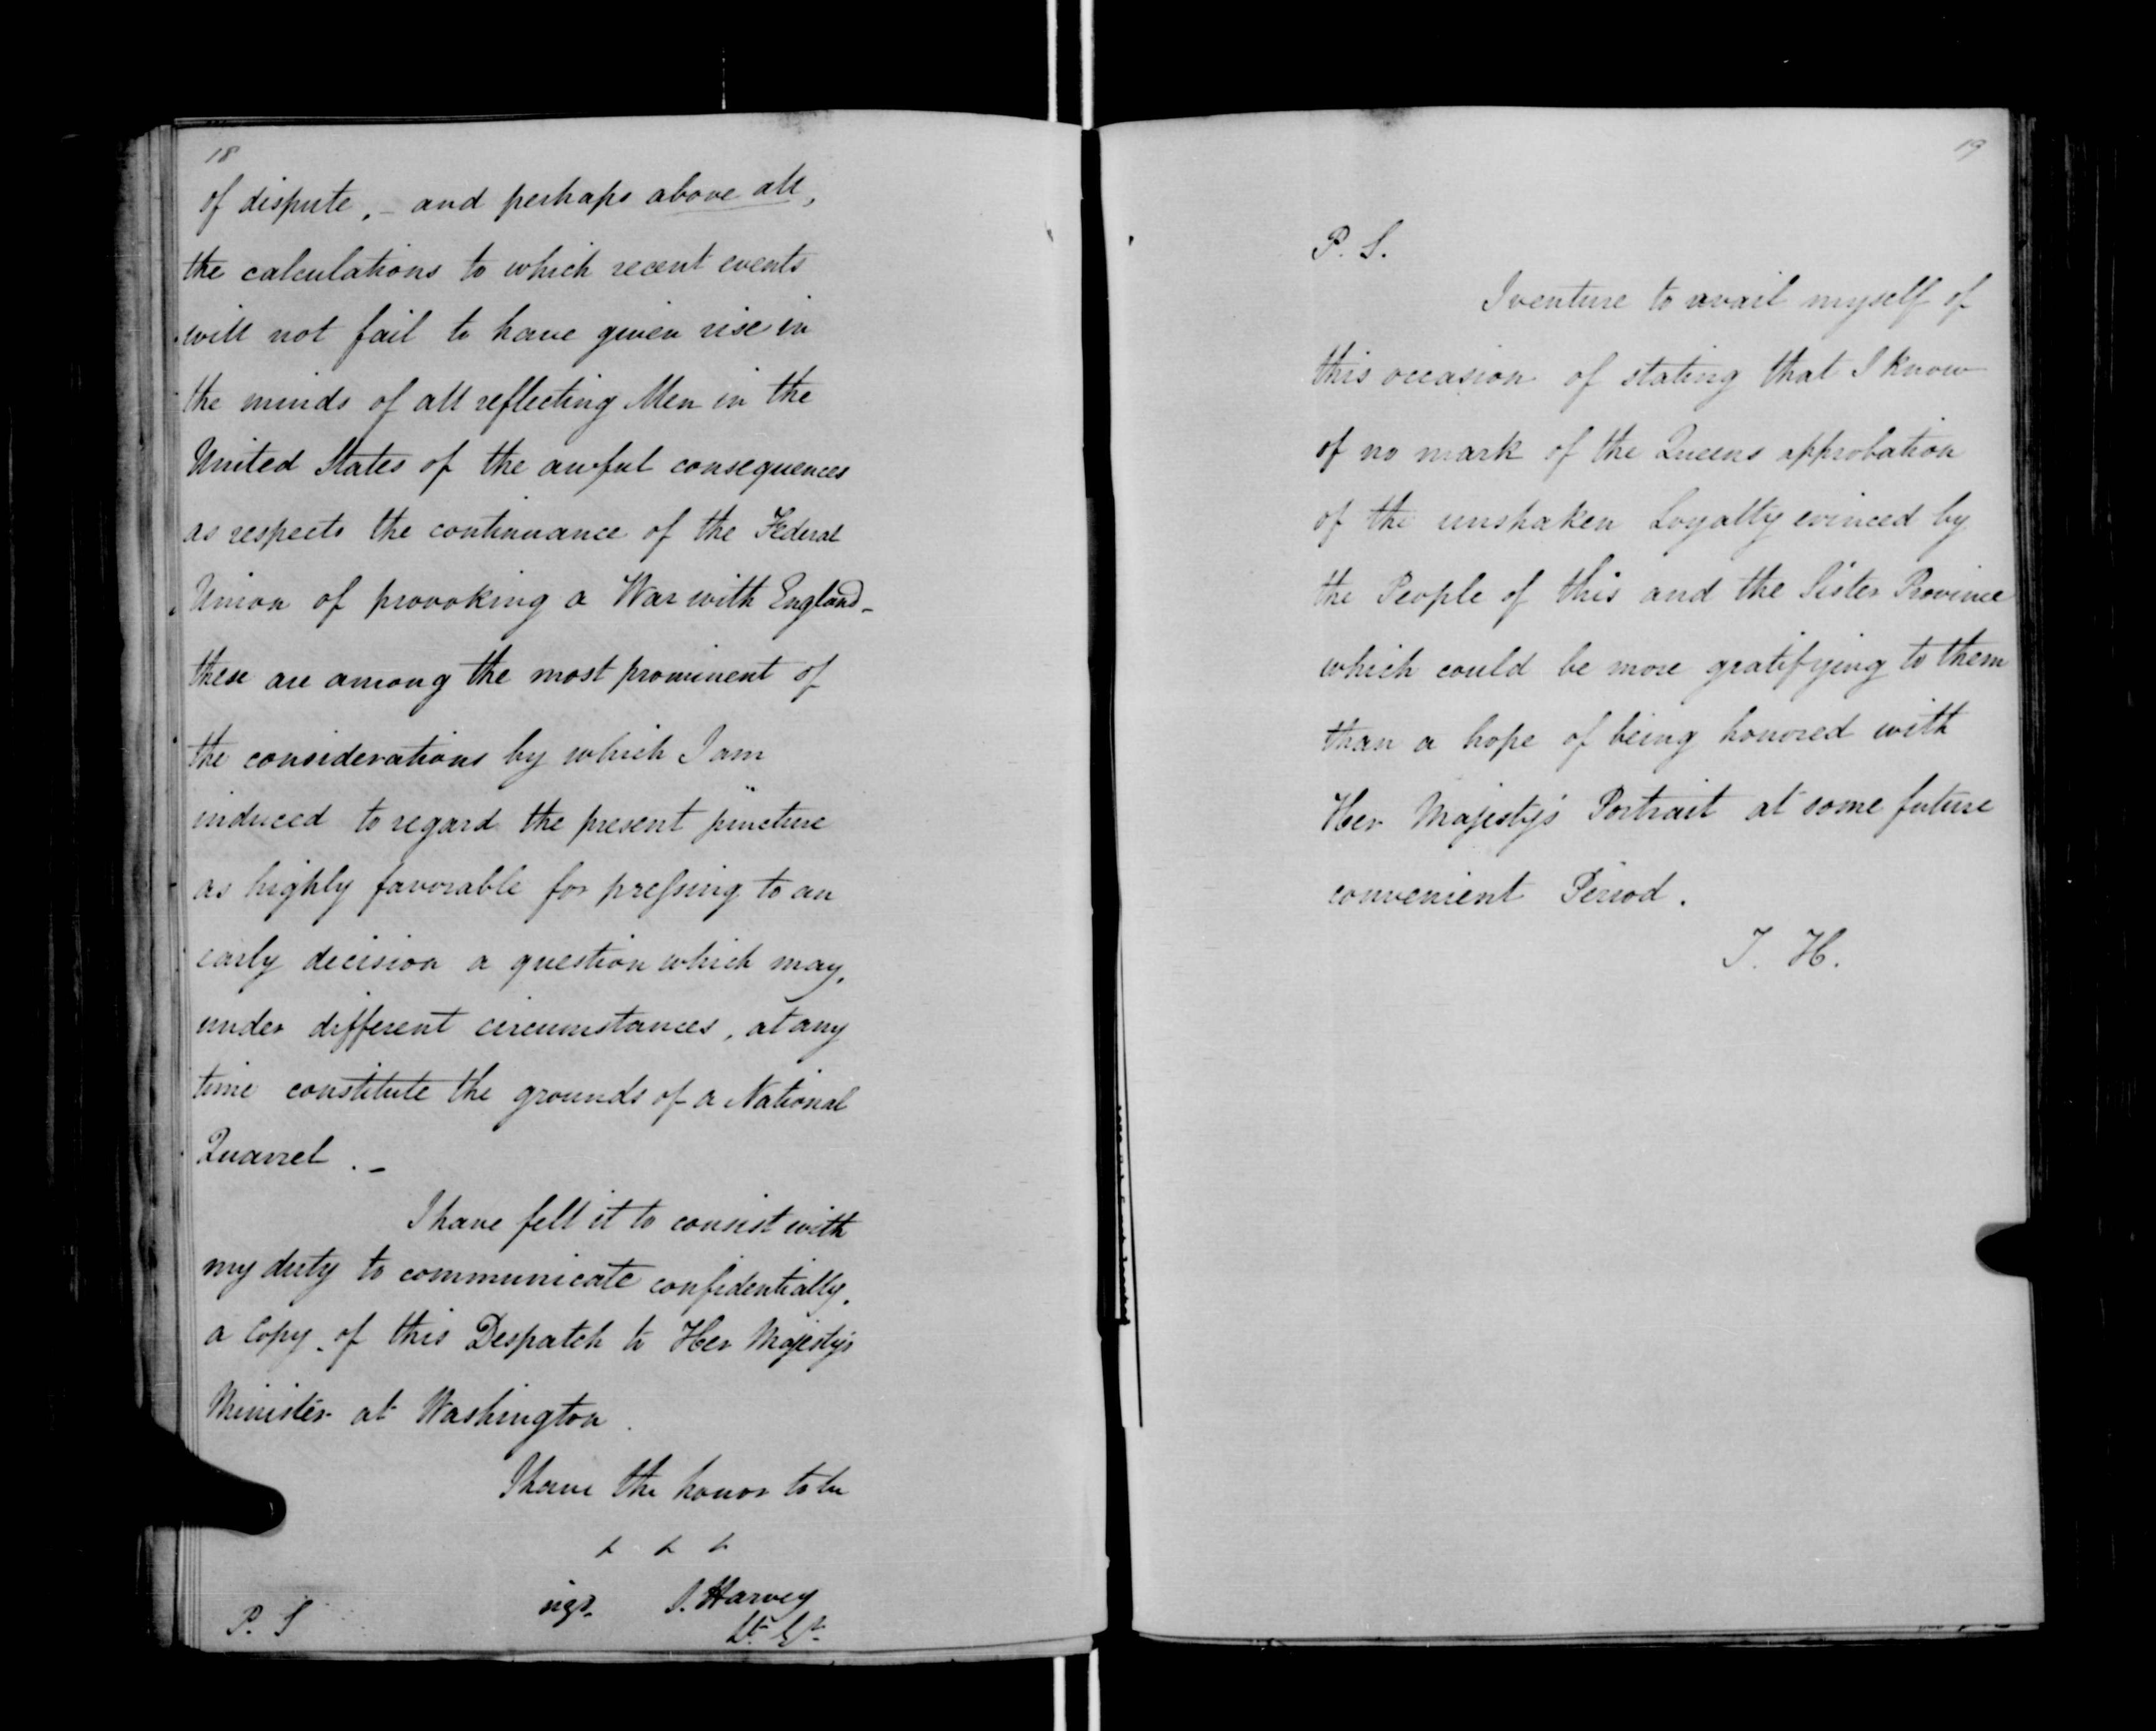 18
of dispute, – and perhaps above all,
the calculations to which recent events
will not fail to have given rise in
the minds of all reflecting Men in the
United States of the awful consequences
as respects the continuance of the Federal
Union of provoking a War with England –
these are among the most prominent of
the considerations by which I am
induced to regard the present juncture
as highly favorable for pressing to an
early decision a question which may,
under different circumstances, at any
time constitute the grounds of a National
Quarrel . –
I have felt it to consist with
my duty to communicate confidentially,
a Copy of this Despatch to Her Majesty's
Minister at Washington.
I have the honor to be
sigd. J. Harvey
Lt. Gr.
P. S
19
P. S.
I venture to avail myself of
this occasion of stating that I know
of no mark of the Queens approbation
of the unshaken Loyalty evinced by
the People of this and the Sister Province
which could be more gratifying to them
than a hope of being honored with
Her Majesty's Portrait at some future
convenient Period.
J. H.